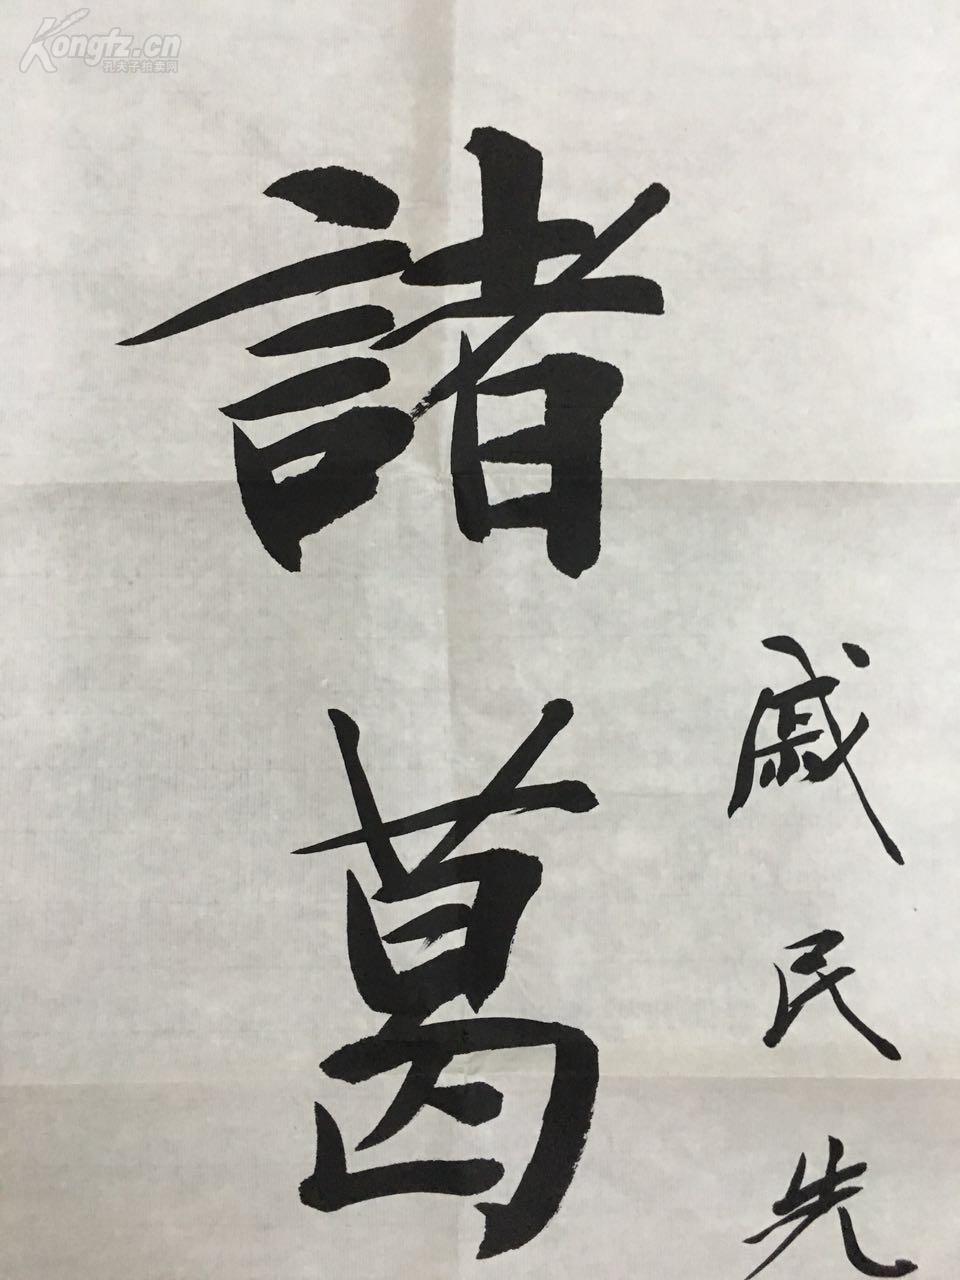 Kongfz.cn
孔夫子拍卖网
戚民先
諸葛